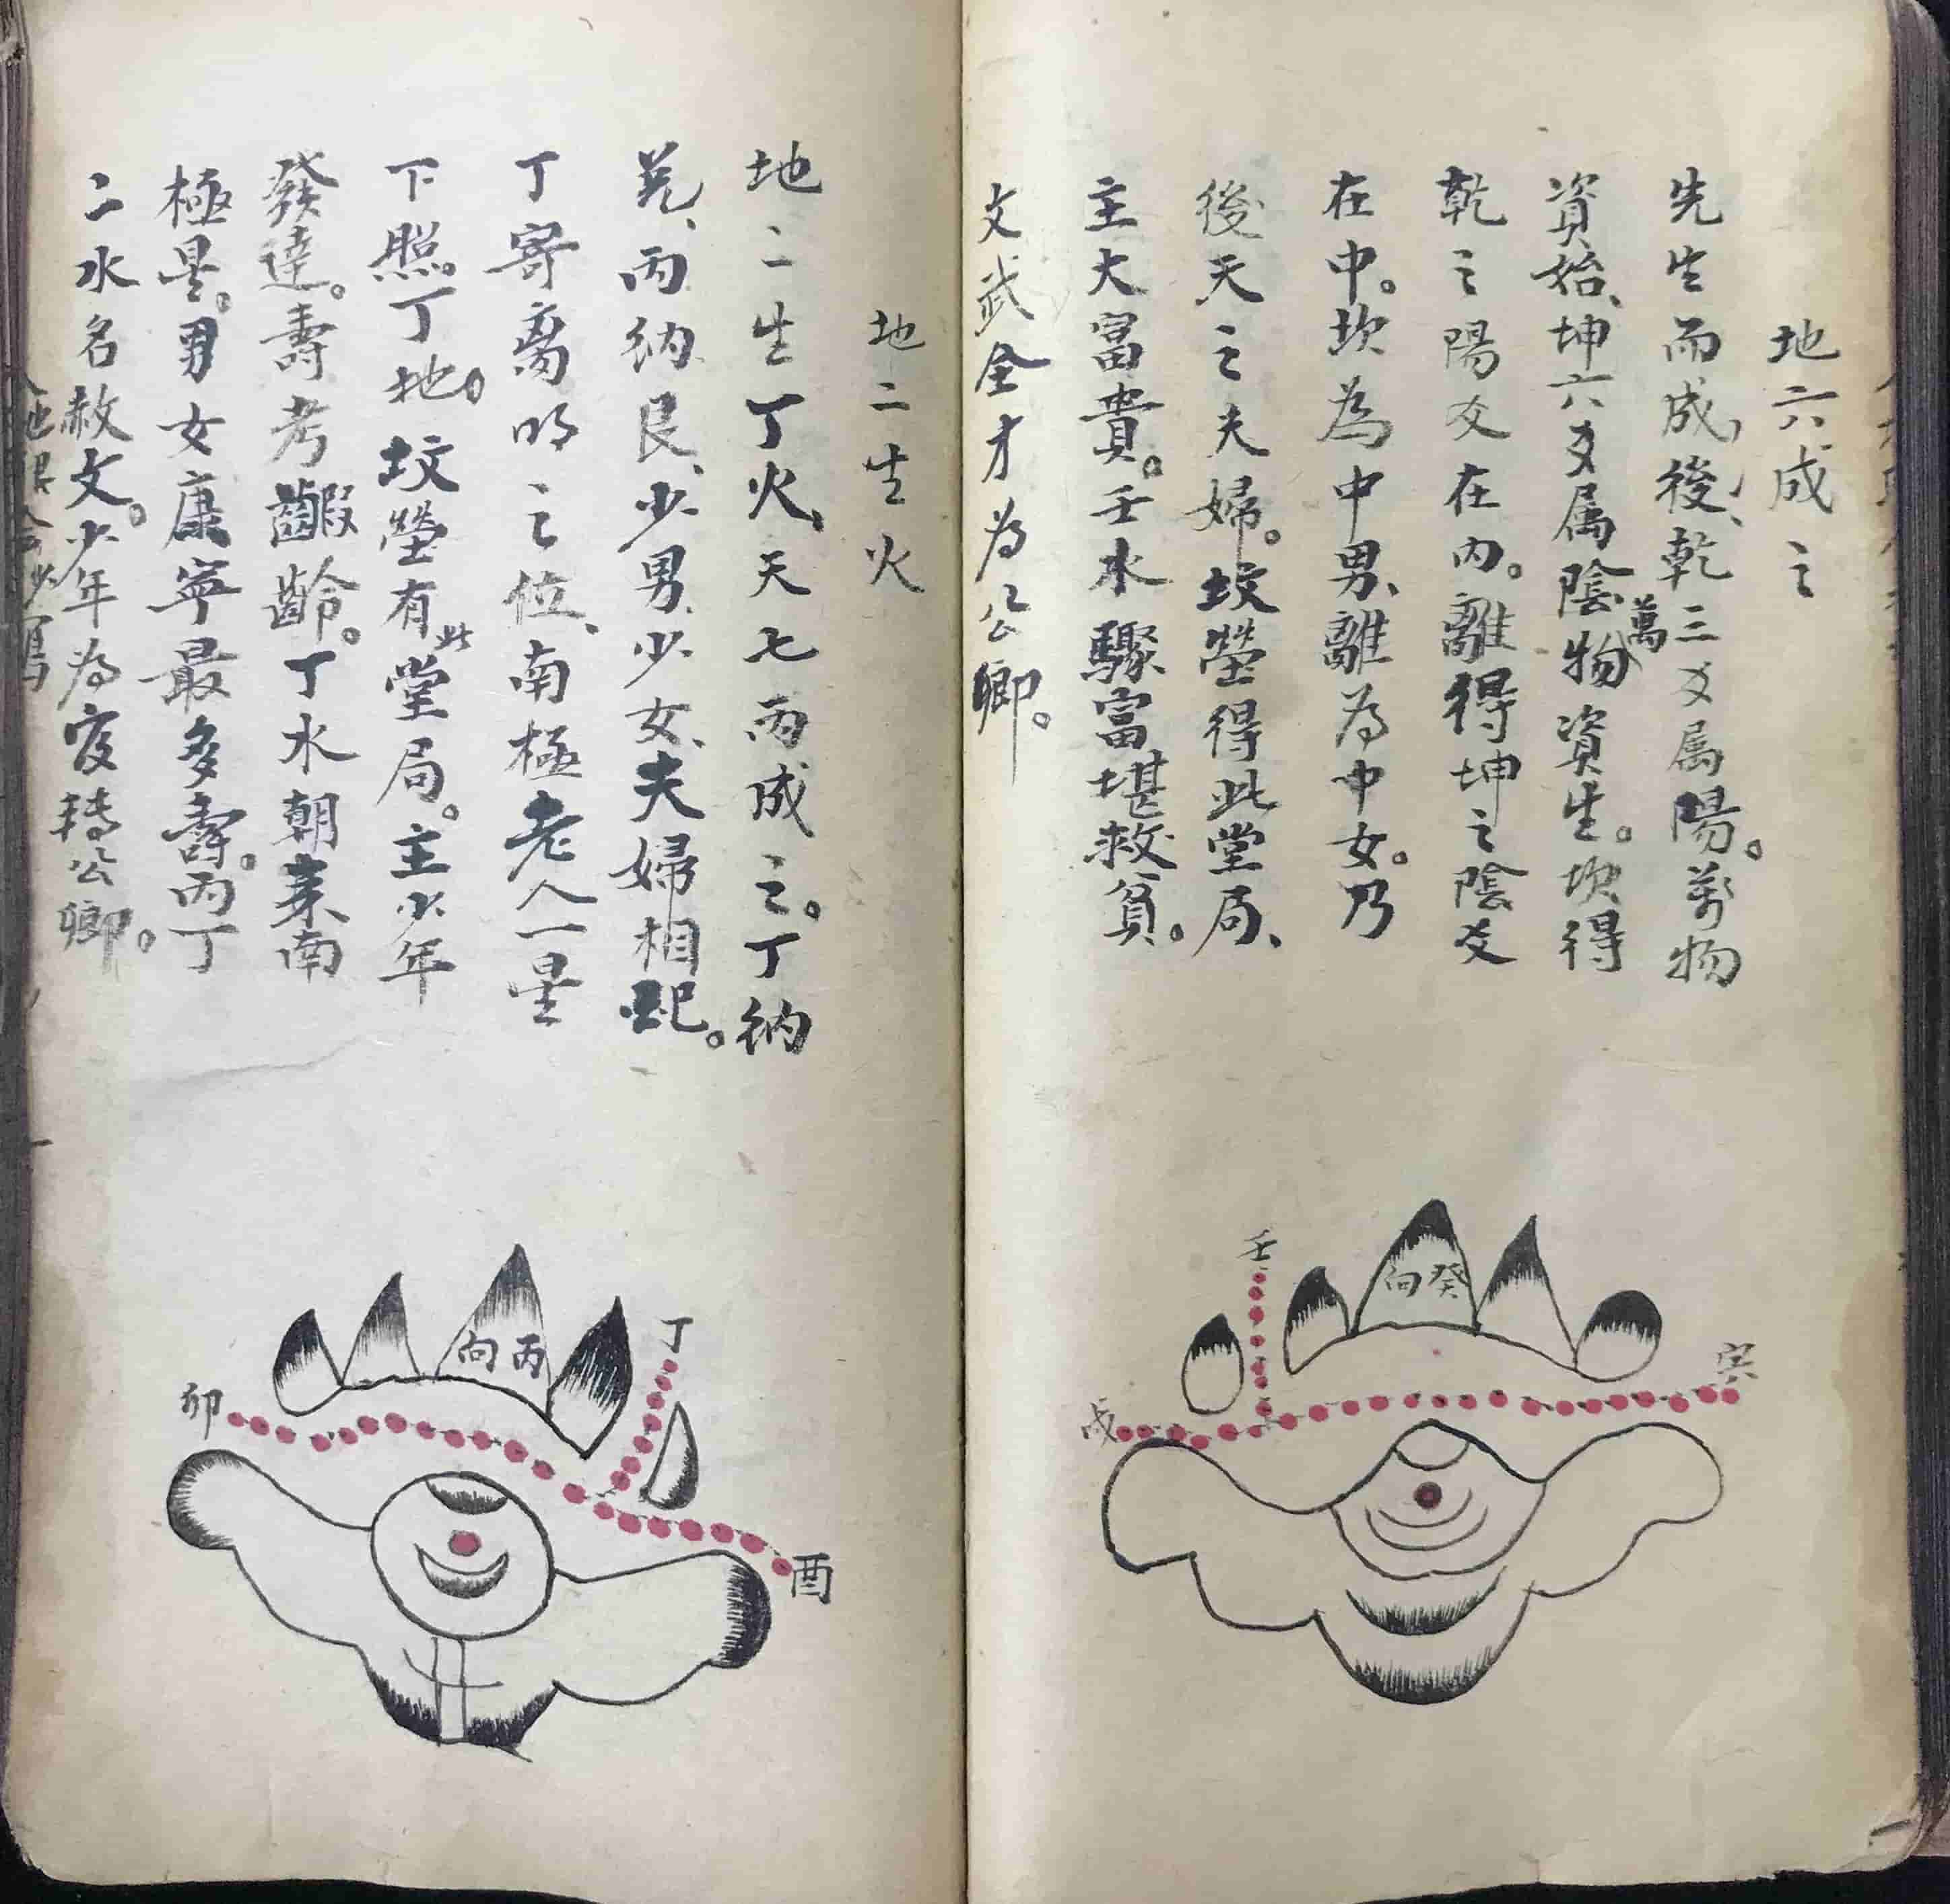 地六成之
先生而成後、乾三爻属陽。萬物
資始、坤六爻属陰萬物資生。坎得
乾之陽爻在內。離得坤之陰爻
在中。坎為中男、離為中女。乃
後天之夫婦。坟塋得此堂局、
主大富貴。壬水驟富堪救貧。
文武全才為公卿。
壬
向癸
戌
亥
地二生火
地二生丁火、天七丙成之。丁納
兑、丙納艮、少男、少女、夫婦相配。
丁寄离明之位、南極老人一星
下照丁地。坟塋有此堂局。主少年
發達。壽考齦齡。丁水朝来南
極星。男女康寧最多壽。丙丁
二水名赦文。少年為宦轉公卿。
丁
向丙
卯
酉